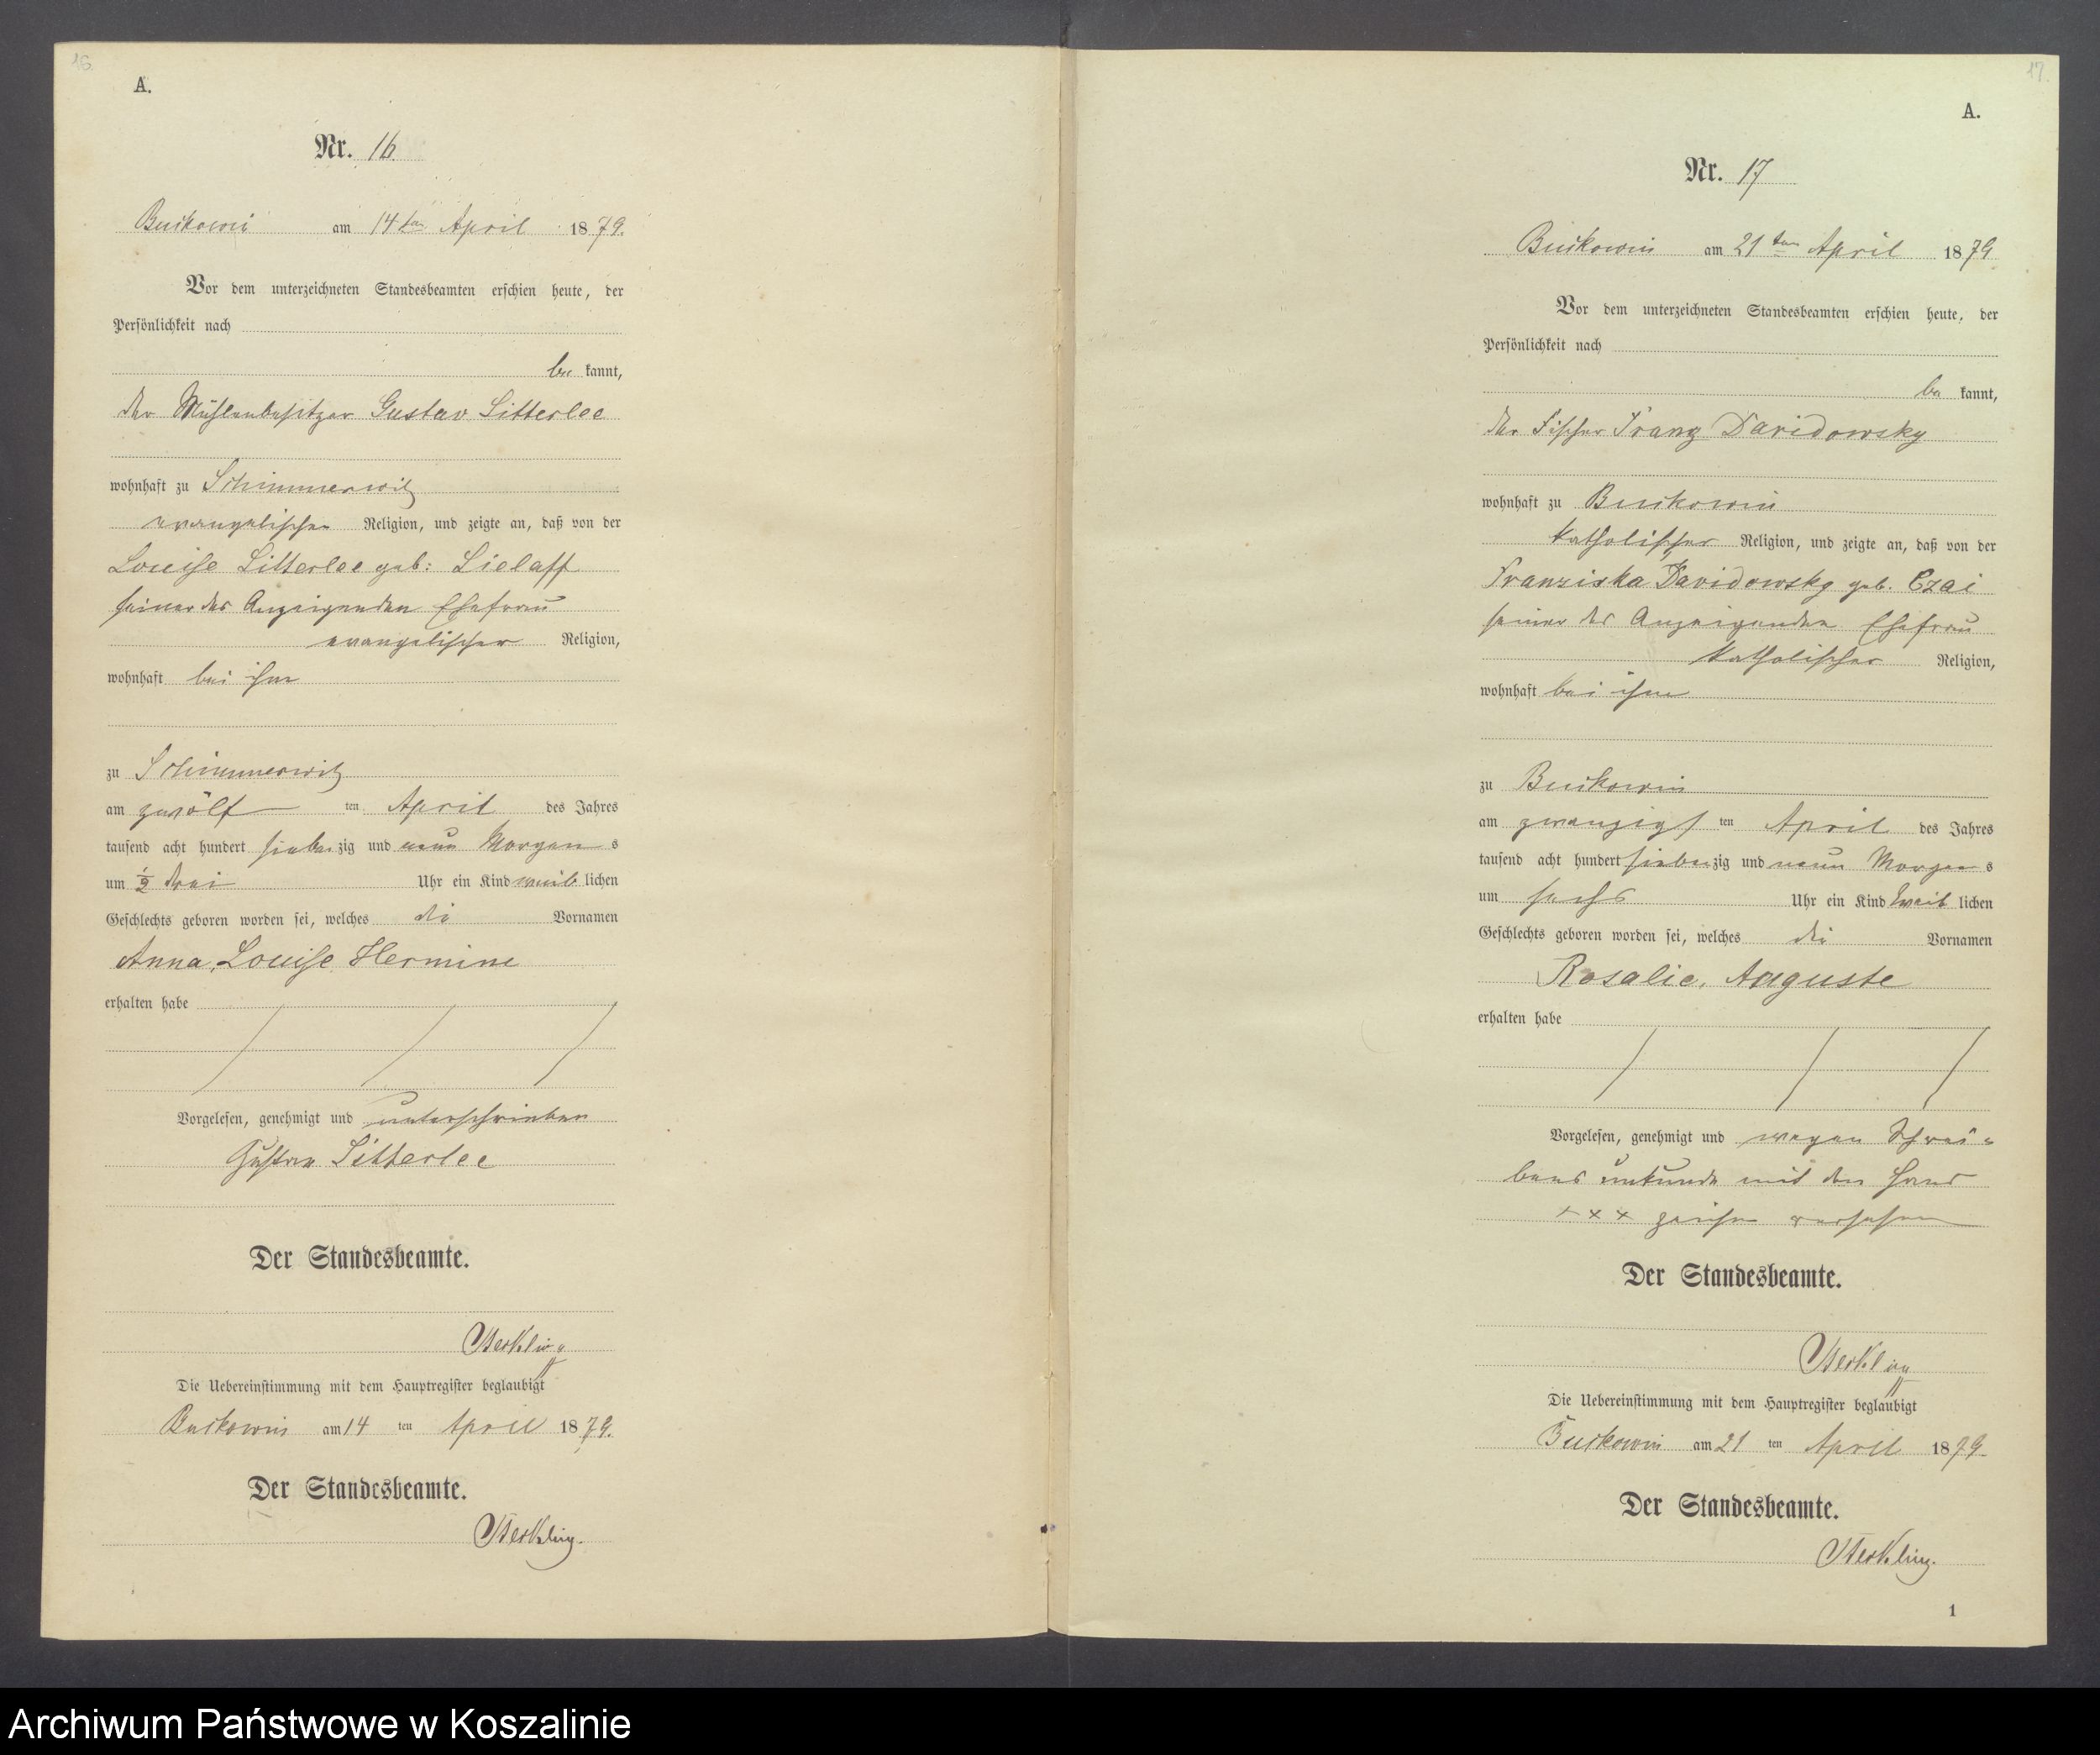 16.
A.
Nr. 16.
Buckowin am 14ten April 1879.
Vor dem unterzeichneten Standesbeamten erschien heute, der
Persönlichkeit nach
be kannt,
der Mühlenbesitzer Gustav Litterlee
wohnhaft zu Schimmerwitz
evangelischer Religion, und zeigte an, daß von der
Louise Litterlee geb: Lielaff
seiner des Anzeigenden Ehefrau
evangelischer Religion,
wohnhaft bei ihm
zu Schimmerwitz
am zwölf ten April des Jahres
tausend acht hundert sieben zig und neun Morgen s
um ½ drei Uhr ein Kind weib lichen
Geschlechts geboren worden sei, welches die Vornamen
Anna, Louise Hermine
erhalten habe
Vorgelesen, genehmigt und unterschrieben
Gustav Litterlee
Der Standesbeamte.
Die Uebereinstimmung mit dem Hauptregister beglaubigt
Buckowin am 14 ten April 1879.
Der Standesbeamte.
17.
A.
Nr. 17
Buckowin am 21ten April 1879
Vor dem unterzeichneten Standesbeamten erschien heute, der
Persönlichkeit nach
be kannt,
der Fischer Franz Davidowsky
wohnhaft zu Buckowin
katholischer Religion, und zeigte an, daß von der
Franziska Davidowsky geb. Czai
seiner des Anzeigenden Ehefrau
katholischer Religion,
wohnhaft bei ihm
zu Buckowin
am zwanzigs ten April des Jahres
tausend acht hundert sieben zig und neun Morgen s
um sechs Uhr ein Kind weib lichen
Geschlechts geboren worden sei, welches die Vornamen
Rosalie, Auguste
erhalten habe
Vorgelesen, genehmigt und wegen Schrei-
bens unkunde mit den Hand
+ x x zeichen versehen
Der Standesbeamte.
Die Uebereinstimmung mit dem Hauptregister beglaubigt
Buckowin am 21 ten April 1879.
Der Standesbeamte.
1
Archiwum Państwowe w Koszalinie